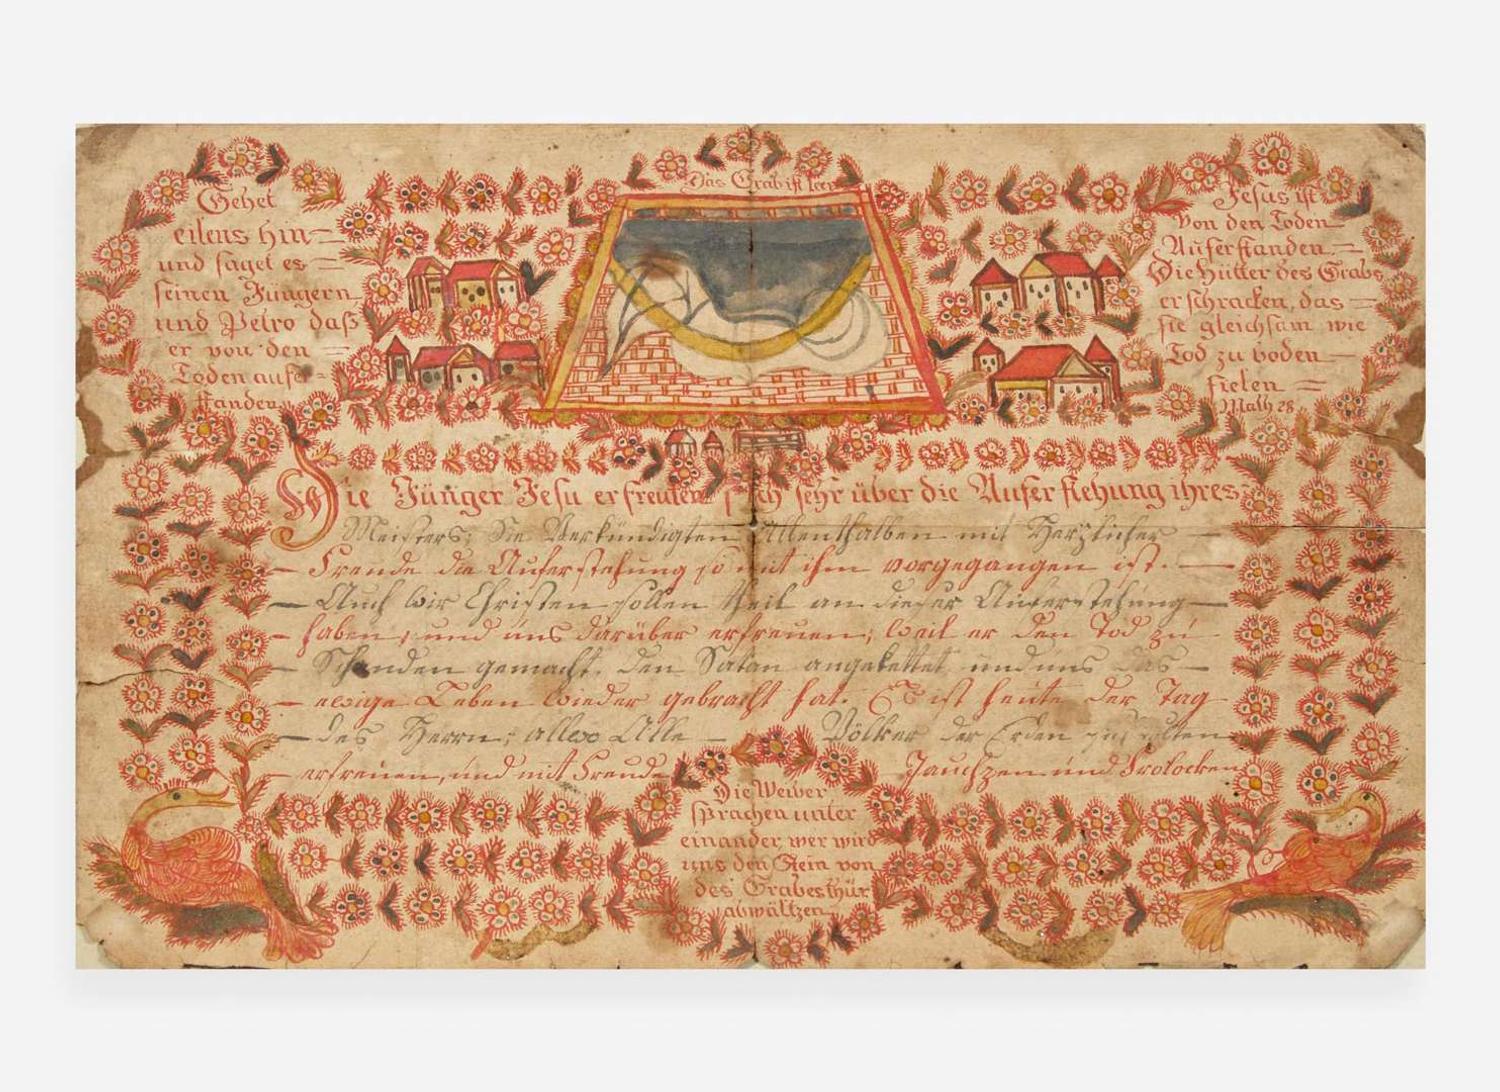 Das Grab ist leer
Gehet
eilens hin=
und saget es =
seinen Jüngern
und Petro daß
er von den =
Toden aufer=
standen
Jesus ist
von den Toden
Auferstanden =
Die Hütter des Grabs
erschracken, das =
sie gleichsam wie
Tod zu boden
fielen =
Math 28
Die Jünger Jesu erfreuten sich sehr über die Auferstehung ihres
Meisters; Sie Verkündigten Allenthalben mit Herzlicher
Freude die Auferstehung so mit ihm vorgegangen ist.
Auch wir Christen sollen theil an dieser Auferstehung
haben, und uns darüber erfreuen; weil er den Tod zu
Schanden gemacht, den Satan angekettet, und uns das
ewige Leben wieder gebracht hat. Es ist heute der Tag
des Herrn; allwo Alle Völker der Erden sich sollen
erfreuen, und mit Freude Jauchzen und Frolocken
Die Weiber
sprachen unter
einander, wer wird
uns den Stein von
des Grabes thür
abwältzen